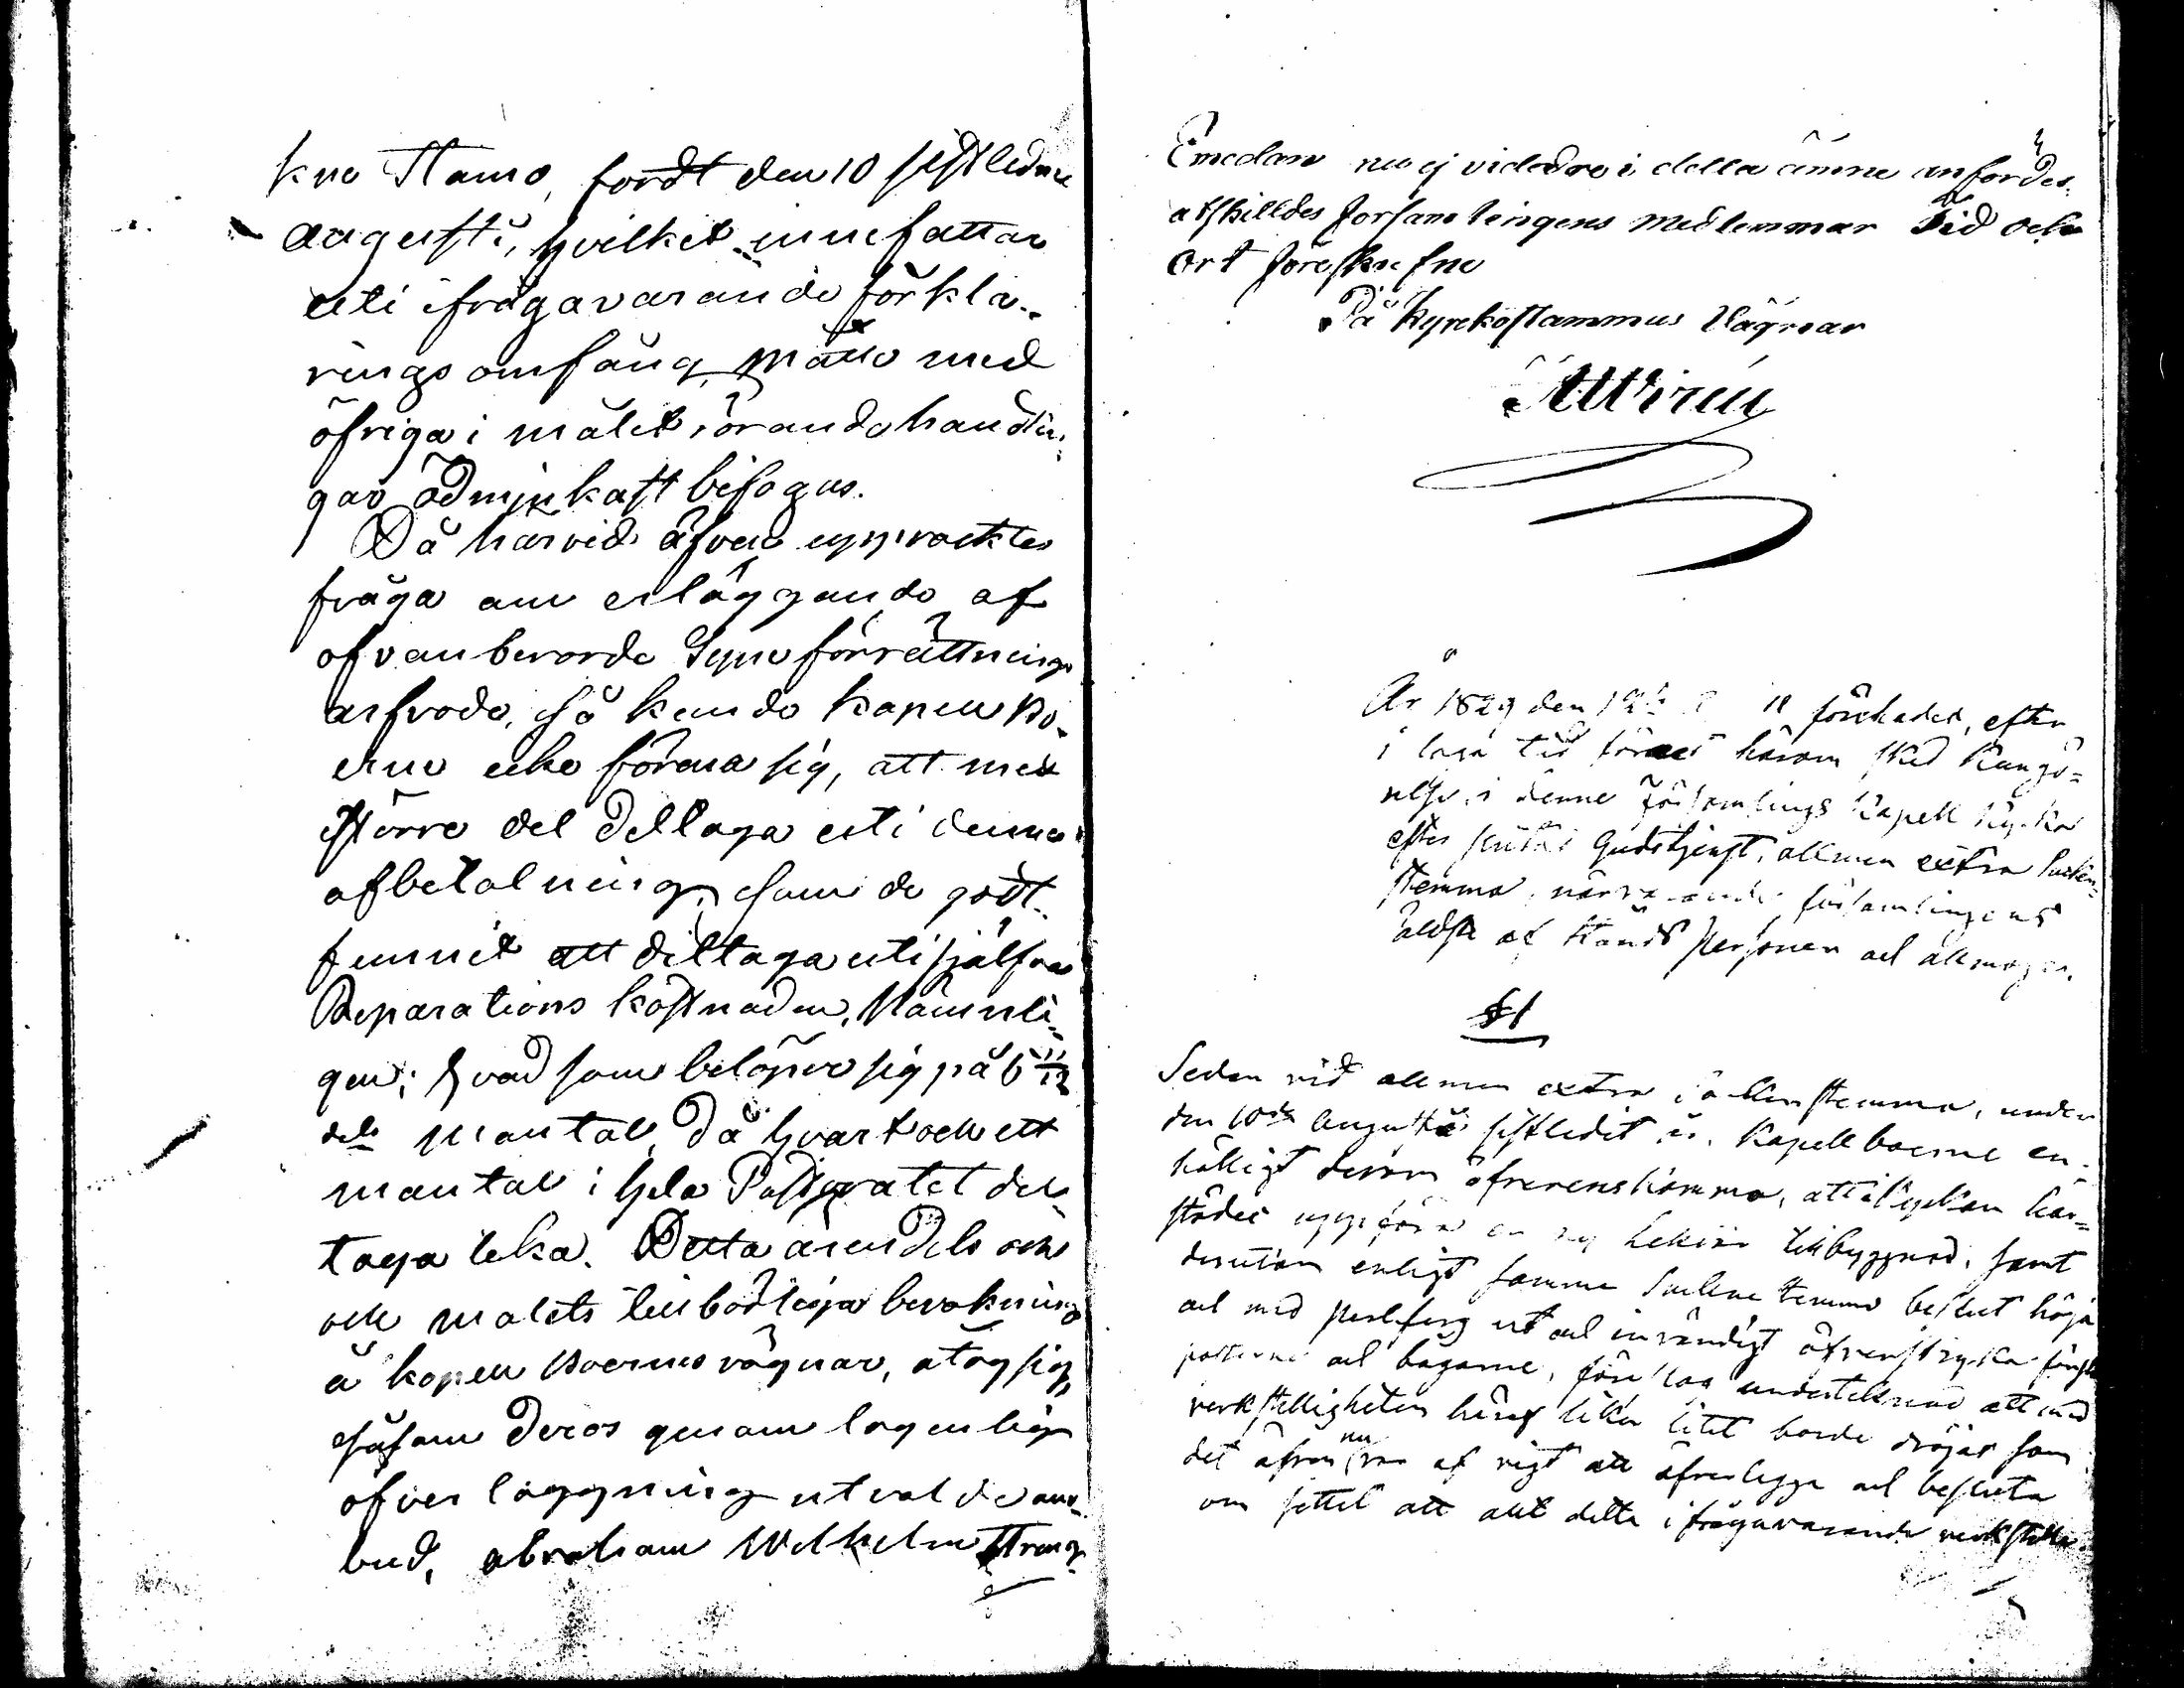 kne Stamo, fördt den 10 sistledne
Augusti, hvilket innefattar
uti ifrågavarande förkla-
rings omfång, måtte med
öfrige i målet rörande handlin-
gar ödmjukast bifogas.
Då härvid äfven uppväcktes
fråga om erläggande af
ofvanberörde Syne förrättnings
arfvode, så kunde Kapellbo-
erne icke förena sig, att med
större del deltaga uti denna
afbetalning, som de godt-
funnit att deltaga uti sjelfva
Reparations kostnaden, Nämnli-
gen; hvad som belöper sig på 6 11/12
dels mantal, då hvart och ett
mantal i hela Pastoratet del-
taga lika. Detta ärendets och
och målets tillbörliga bevakning
å kapellboernes vägnar, åtog sig,
såsom deras genom lagenlig
öfverläggning utvalde om-
bud, Abraham Wilhelm Strang
Emedan nu ej vidare i detta ämne anfördes,
åtskilldes Församlingens medlemmar Tid och
Ort föreskrefne
På Kyrkostämmans Vägnar
Wirén
År 1829 den förehades, efter
i laga tid förut härom sked Kungö-
relse, i denne Församlings Kapell Kyrka
efter slutad Gudstjenst, allmen extra Socken-
stemma, närvarande församlingens
äldste af Stånds Personer och allmogen.
§1
Sedan vid allmen extra Sockenstemma, under
den 10de Augusti sistledit år, Kapellboerne en-
hälligt derom öfverenskommo, att i kyrkan här-
städes uppföra en ny Lektar tillbyggnad, samt
desutom enligt samme Sockne stemmo beslut höja
och med perlferg ut och invändigt öfverstryka fönster
posterne och bågarne, föreslog undertecknad att med
verkställigheten häraf lika litet borde dröjas som
det äfven nu var af vigt att öfverlegga och besluta
om settet att allt dette ifrågavarande verkställa